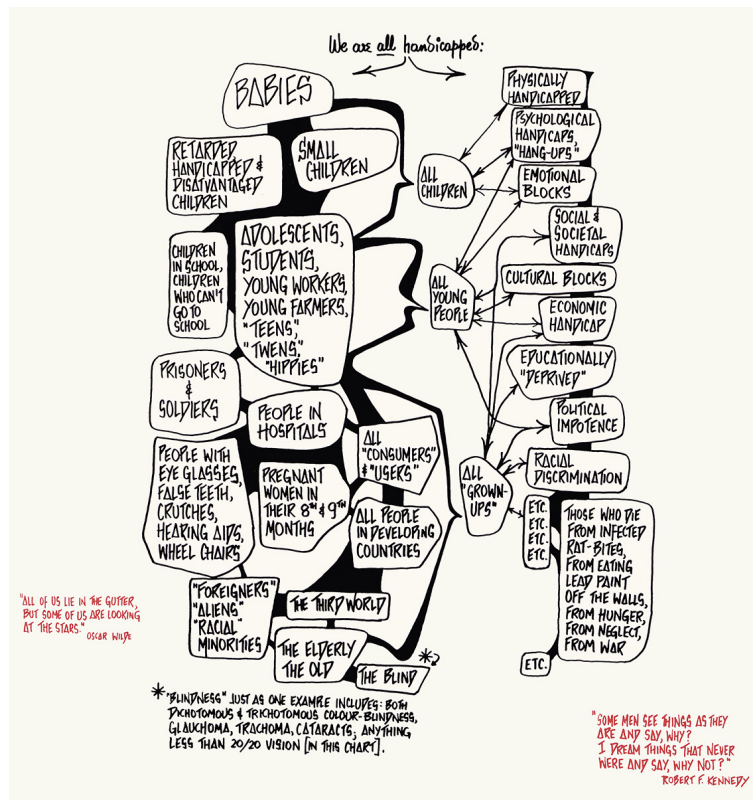 We are all handicapped:
BABIES
RETARDED
HANDICAPPED &
DISATVANTAGED
CHILDREN
SMALL
CHILDREN
CHILDREN
IN SCHOOL,
CHILDREN
WHO CAN'T
GO TO
SCHOOL
ADOLESCENTS,
STUDENTS,
YOUNG WORKERS,
YOUNG FARMERS,
"TEENS,"
"TWENS,"
"HIPPIES"
PRISONERS
&
SOLDIERS
PEOPLE IN
HOSPITALS
ALL
"CONSUMERS"
& "USERS"
PEOPLE WITH
EYE GLASSES,
FALSE TEETH,
CRUTCHES,
HEARING AIDS,
WHEEL CHAIRS
PREGNANT
WOMEN IN
THEIR 8TH & 9TH
MONTHS
ALL PEOPLE
IN DEVELOPING
COUNTRIES
"FOREIGNERS"
"ALIENS"
"RACIAL"
MINORITIES
THE THIRD WORLD
THE ELDERLY
THE OLD
THE BLIND
*
ALL
CHILDREN
ALL
YOUNG
PEOPLE
ALL
"GROWN-
UPS"
PHYSICALLY
HANDICAPPED
PSYCHOLOGICAL
HANDICAPS,
"HANG-UPS"
EMOTIONAL
BLOCKS
SOCIAL &
SOCIETAL
HANDICAPS
CULTURAL BLOCKS
ECONOMIC
HANDICAP
EDUCATIONALLY
"DEPRIVED"
POLITICAL
IMPOTENCE
RACIAL
DISCRIMINATION
ETC.
ETC.
ETC.
ETC.
THOSE WHO DIE
FROM INFECTED
RAT-BITES,
FROM EATING
LEAD PAINT
OFF THE WALLS,
FROM HUNGER,
FROM NEGLECT,
FROM WAR
ETC.
"ALL OF US LIE IN THE GUTTER,
BUT SOME OF US ARE LOOKING
AT THE STARS."
OSCAR WILDE
* "BLINDNESS" JUST AS ONE EXAMPLE INCLUDES: BOTH
DICHOTOMOUS & TRICHOTOMOUS COLOUR-BLINDNESS,
GLAUCHOMA, TRACHOMA, CATARACTS; ANYTHING
LESS THAN 20/20 VISION [IN THIS CHART].
"SOME MEN SEE THINGS AS THEY
ARE AND SAY, WHY?
I DREAM THINGS THAT NEVER
WERE AND SAY, WHY NOT?"
ROBERT F. KENNEDY